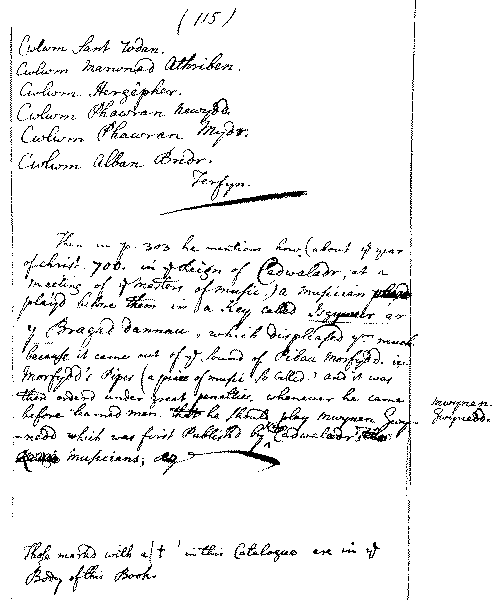 (115)
Cwlwm Sant Iodan.
Cwlwm Marwnad Athriben.
Cwlwm Hergepher.
Cwlwm Phawran newydd.
Cwlwm Phawran Mydr.
Cwlwm Alban Bridr.
Terfyn.
Then in p. 303 he mentions how (about ye year
of christ 700. in ye Reign of Cadwaladr, at a
meeting of ye Masters of music,) a musician
play'd before them in a Key called Isgywair ar
y Bragad dannau, which displeased ym much
because it came out of ye sound of Pibau Morfydd. ie.
Morfydd's Pipes (a piece of music so Called.) and it was
then orderd under great penalties, whenever he came
before learned men. he should play Mwynen Gwy-
-nedd which was first Published by Cadwaladr's
musicians;
mwynen
Gwynedd.
Those marked with a † in this Catalogue are in ye
Body of this Book